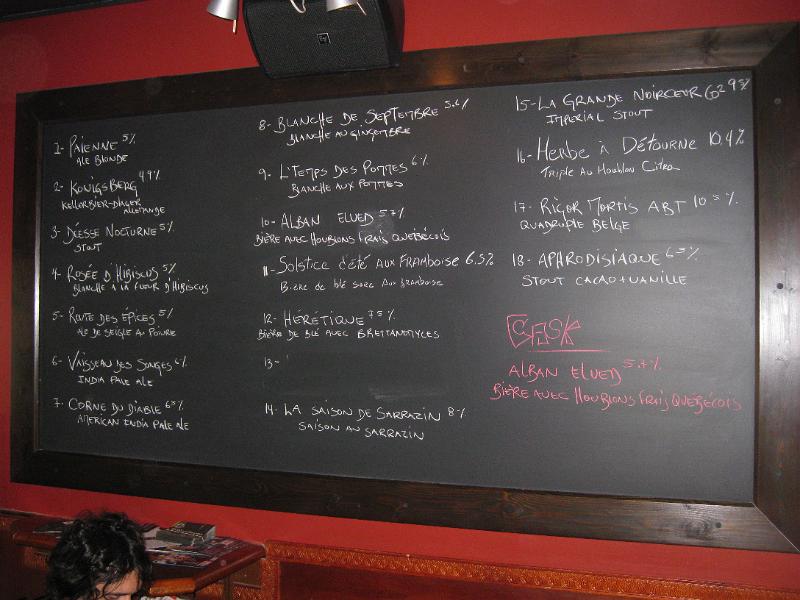 1- PAÏENNE 5%
ALE BLONDE
2- KONIGSBERG 4.9%
KELLORBIER-DLAGER
ALLEMANGE
3- DÉESSE NOCTURNE 5%
STOUT
4- ROSÉE D'HIBISCUS 5%
BLANCHE À LA FLEUR D'HIBISCUS
5- ROUTE DES ÉPICES 5%
ALE DE SEIGLE AU POIVRE
6- VAISSEAU DES SONGES 6%
INDIA PALE ALE
7- CORNE DU DIABLE 6.5%
AMERICAN INDIA PALE ALE
8- BLANCHE DE SEPTEMBRE 5.6%
BLANCHE AU GINGEMBRE
9- L'TEMPS DES POMMES 6%
BLANCHE AUX POMMES
10- ALBAN ELUED 5.7%
BIÈRE AVEC HOUBLONS FRAIS QUEBÉCOIS
11- SOLSTICE D'ÉTÉ AUX FRAMBOISE 6.5%
BIÈRE DE BLÉ SURE AUX FRAMBOISE
12- HÉRÉTIQUE 7.5%
BIÈRE DE BLÉ AVEC BRETTANOMYCES
13-
14- LA SAISON DE SARRAZIN 8%
SAISON AU SARRAZIN
15- LA GRANDE NOIRCEUR 9.5%
IMPERIAL STOUT
16- Herbe à Détourne 10,4%
Triple Au Houblon Citra
17- RIGOR MORTIS ABT 10.5%
QUADRUPLE BELGE
18- APHRODISIAQUE 6.5%
STOUT CACAO+VANILLE
CASK
ALBAN ELUED 5.7%
BIÈRE AVEC HOUBLONS FRAIS QUEBÉCOIS